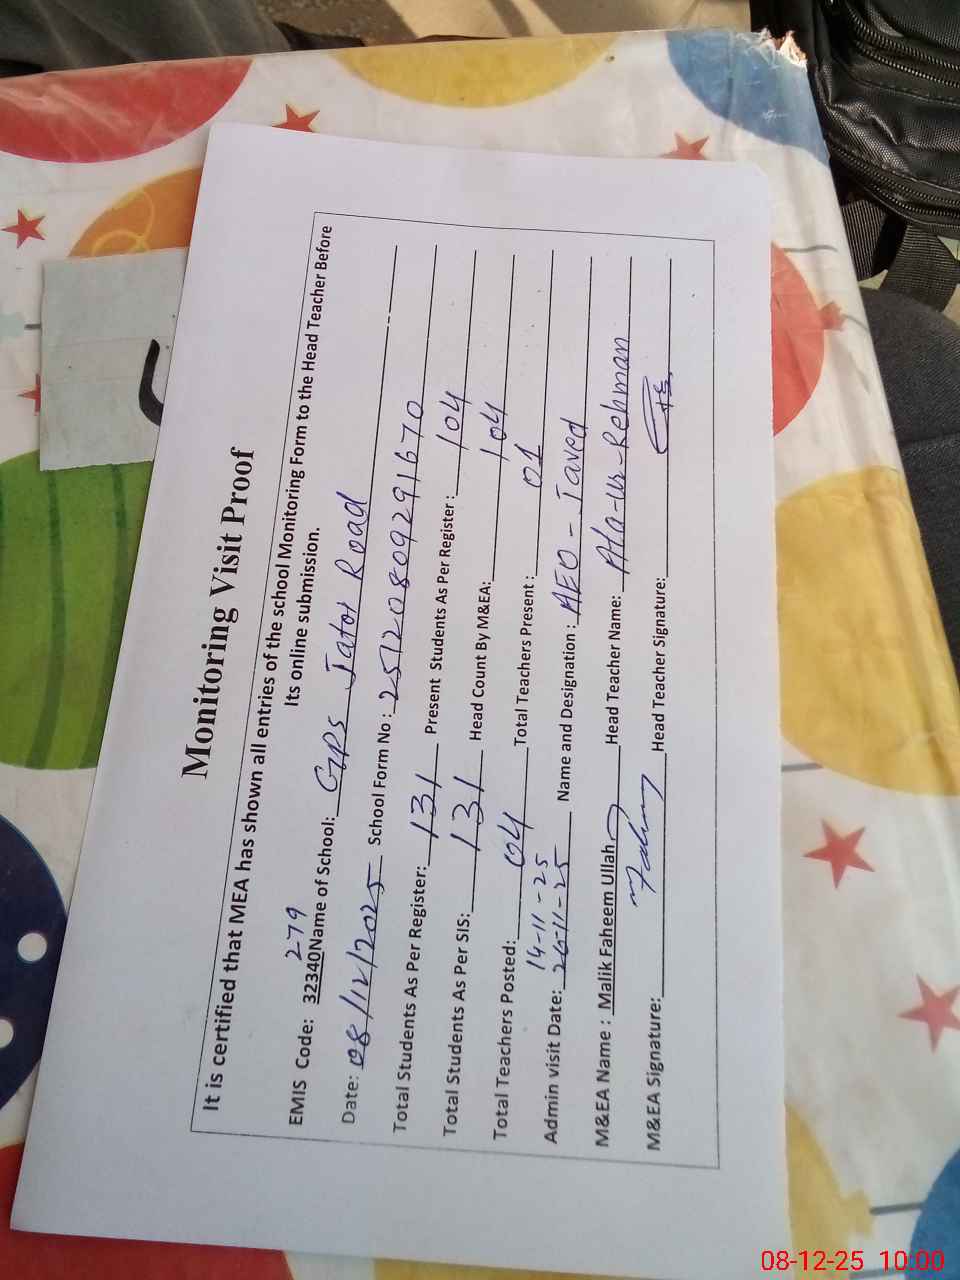 Monitoring Visit Proof
It is certified that MEA has shown all entries of the school Monitoring Form to the Head Teacher Before
Its online submission.
EMIS Code: 32340279 Name of School: GPS Jatoi Road
Date: 08/12/2025 School Form No: 251208092916 70
Total Students As Per Register: 131 Present Students As Per Register: 104
Total Students As Per SIS: 131 Head Count By M&EA: 104
Total Teachers Posted: 04 Total Teachers Present: 01
14-11-25
Admin visit Date: 26-11-25 Name and Designation: AEO - Javed
M&EA Name: Malik Faheem Ullah Head Teacher Name: Ata-ur-Rehman
M&EA Signature: Faheem Head Teacher Signature:
08-12-25 10:00